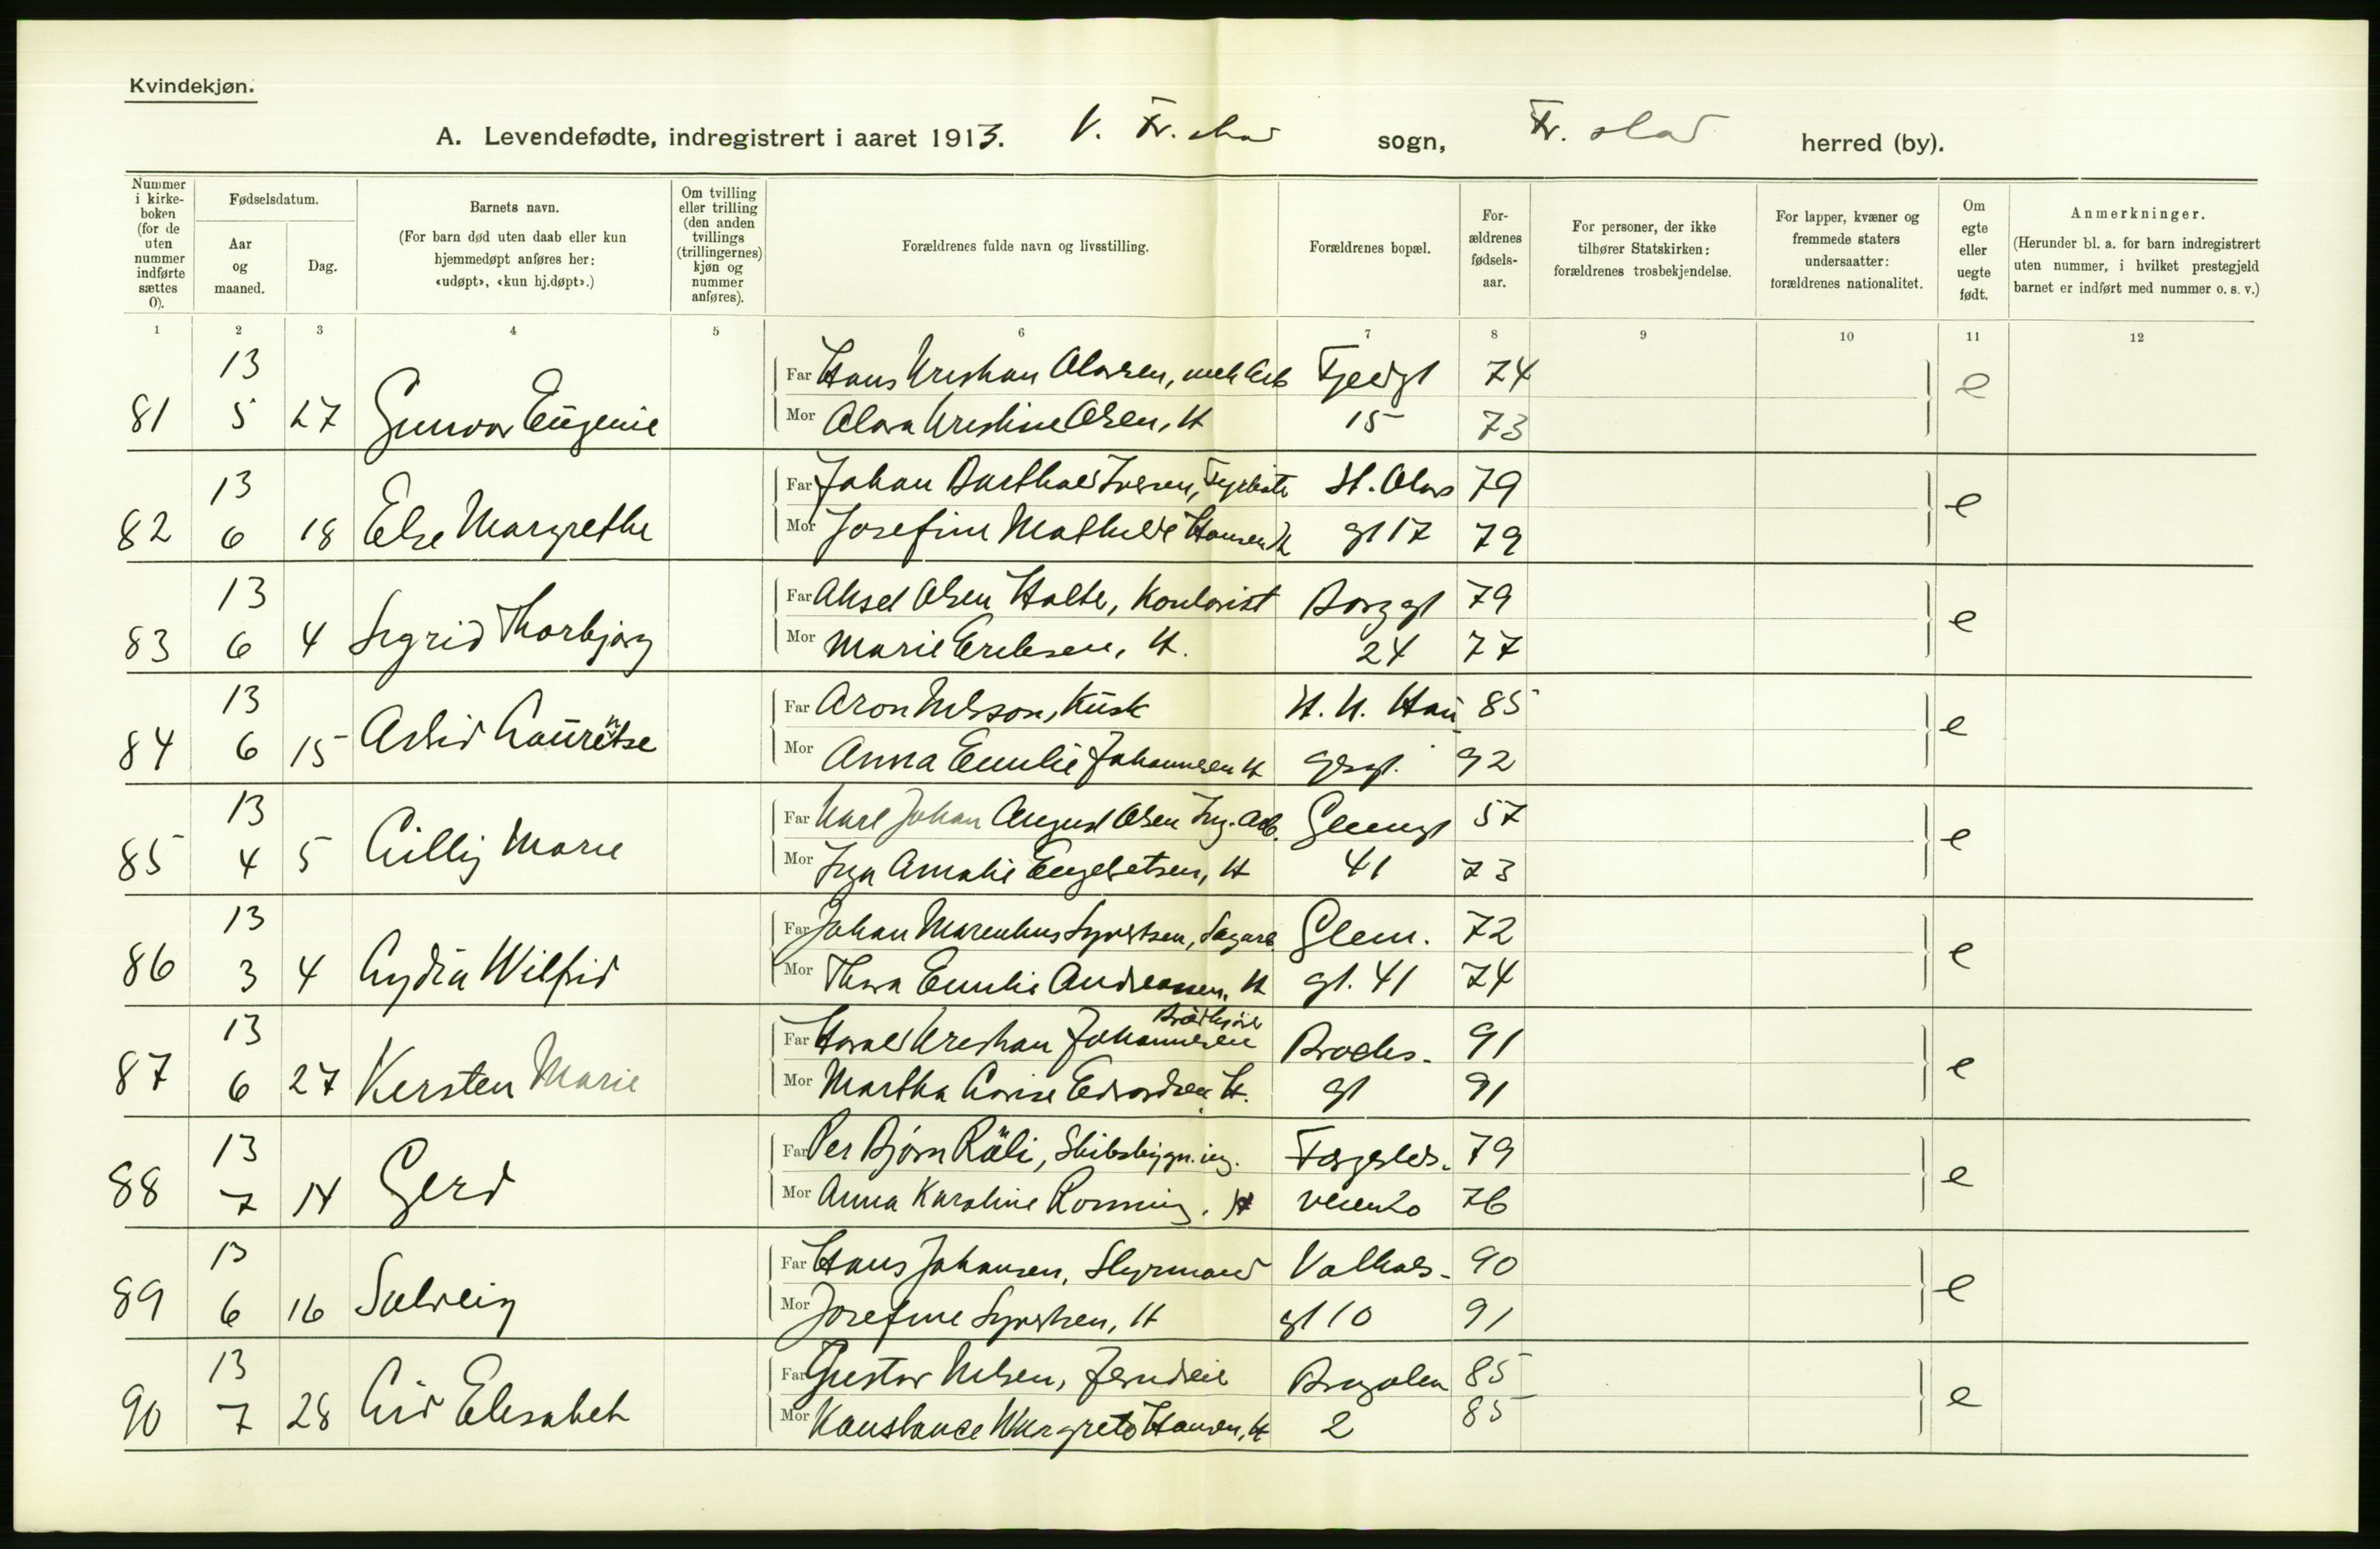 Kvindekjøn.
A. Levendefødte, indregistrert i aaret 1913. V. Fr.stad sogn, Fr. stad herred (by).
Nummer i kirkeboken (for de uten nummer indførte sættes 0).
Fødselsdatum.
Aar og maaned.
Dag.
Barnets navn.
(For barn død uten daab eller kun hjemmedøpt anføres her: «udøpt», «kun hj.døpt».)
Om tvilling eller trilling (den anden tvillings (trillingernes) kjøn og nummer anføres).
Forældrenes fulde navn og livsstilling.
Forældrenes bopæl.
Forældrenes fødselsaar.
For personer, der ikke tilhører Statskirken: forældrenes trosbekjendelse.
For lapper, kvæner og fremmede staters undersaatter: forældrenes nationalitet.
Om egte eller uegte født.
Anmerkninger.
(Herunder bl. a. for barn indregistrert uten nummer, i hvilket prestegjeld barnet er indført med nummer o. s. v.)
1 2 3 4 5 6 7 8 9 10 11 12
13 Far Hans Kristian Olavsen, mek Arb 74 e
81 5 27 Gunvor Eugenie Mor Olava Kristine Olsen, H 15 73
13 Far Johan Barthold Iversen, Fyrbøter St. Olavs 79 e
82 6 18 Else Margrethe Mor Josefine Mathilde Hansen H gt 17 79
13 Far Aksel Olsen Holte, Kontorist Borggt 79 e
83 6 4 Sigrid Thorbjørg Mor Marie Eriksen, H. 24 77
13 Far Aron Nilsson, Kusk H. N. Hau 85 e
84 6 15 Astrid Lauretse Mor Anna Emilie Johannesen H gesgt. 92
13 Far Karl Johan August Olsen Arb. Glemgt 57 e
85 4 5 Lilly Marie Mor Inga Amalie Engebretsen, H 41 73
13 Far Johan Marenius Syvertsen, Sagarb. Glem. 72 e
86 3 4 Lydia Wilfrid Mor Thora Emilie Andreassen, H gt. 41 74
13 Far Harald Kristian Johannesen Brochs. 91 e
87 6 27 Kersten Marie Mor Martha Lovise Edvardsen, H. gt 91
13 Far Per Bjørn Röli, Skibsbygn. ing. Færgesteds. 79 e
88 7 14 Gerd Mor Anna Karoline Rønning. H veien 20 76
13 Far Hans Johansen, Styrmand Valhals. 90 e
89 6 16 Solveig Mor Josefine Syvertsen, H gt 10 91
13 Far Gustav Nilsen, Jerndreier 85 e
90 7 28 Liv Elisabeth Mor Konstance Margrete Hansen, H 2 85